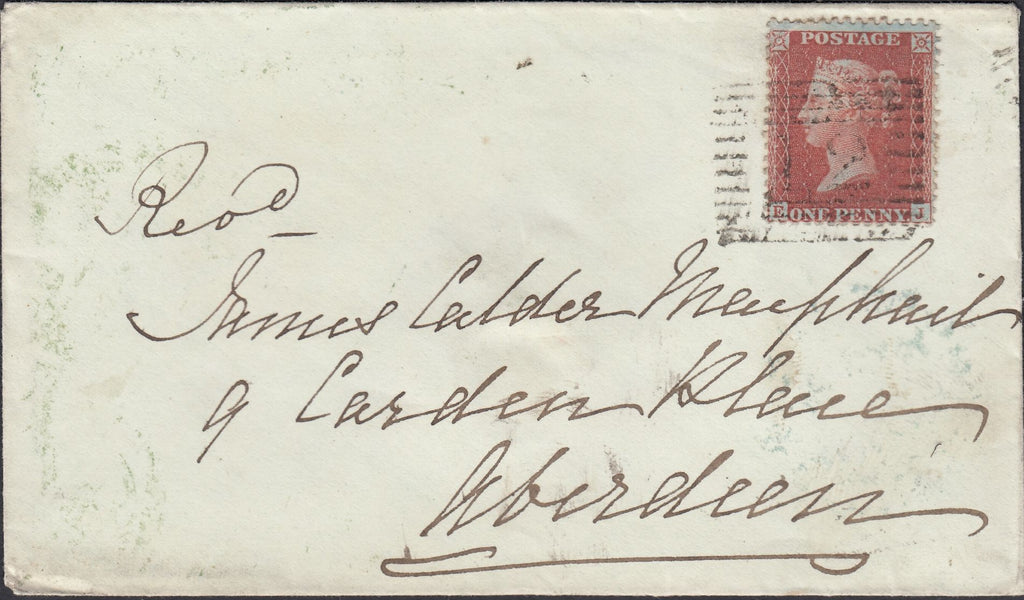 POSTAGE
E ONE PENNY J
Revd
James Calder Macphail
9 Carden Place
Aberdeen